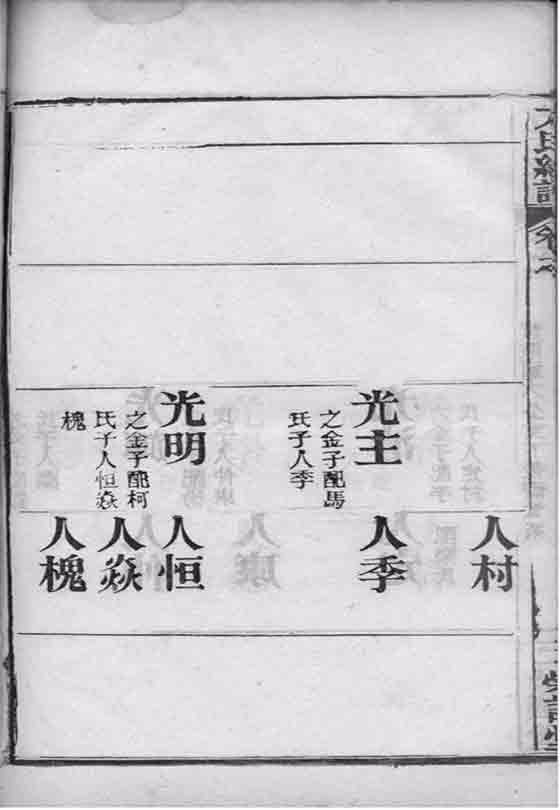 人村
光主
之金子配馬
氏子人季
人季
光明
之金子配柯
氏子人恒焱
槐
人恒
人焱
人槐